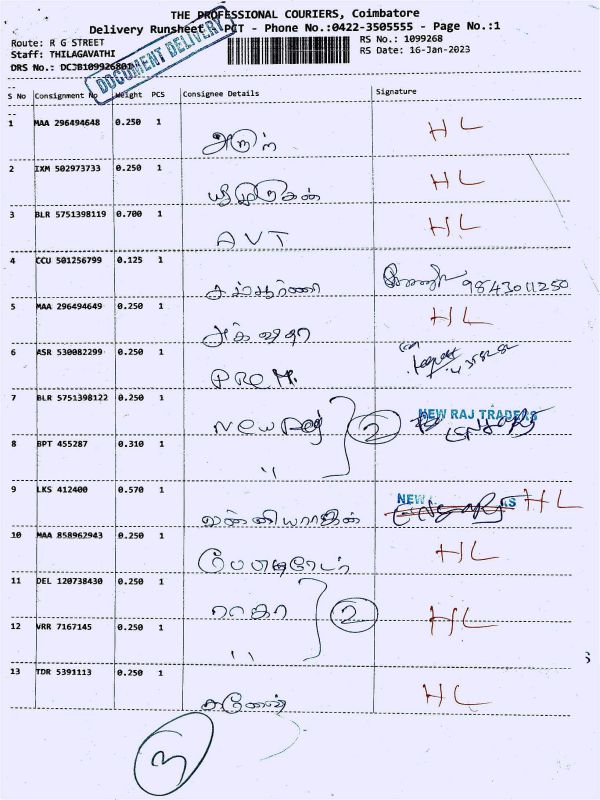 THE PROFESSIONAL COURIERS, Coimbatore
Delivery Runsheet PCT - Phone No.:0422-3505555 - Page No.:1
Route: R G STREET
RS No.: 1099268
Staff: THILAGAVATHI
RS Date: 16-Jan-2023
DRS No.: DCJB109926801
DOCUMENT DELIVERY
S No Consignment No Weight PCS Consignee Details Signature
1 MAA 296494648 0.250 1 அருள் HL
2 IXM 502973733 0.250 1 HL
3 BLR 5751398119 0.700 1 AVT HL
4 CCU 501256799 0.125 1 9843011250
5 MAA 296494649 0.250 1 HL
6 ASR 530082299 0.250 1 PROM.
7 BLR 5751398122 0.250 1 New Raj 2 NEW RAJ TRADERS
8 BPT 455287 0.310 1 "
9 LKS 412400 0.570 1 NEW HL
10 MAA 858962943 0.250 1 HL
11 DEL 120738430 0.250 1 ராகா 2 HL
12 VRR 7167145 0.250 1 "
13 TDR 5391113 0.250 1 கணேஷ் HL
3